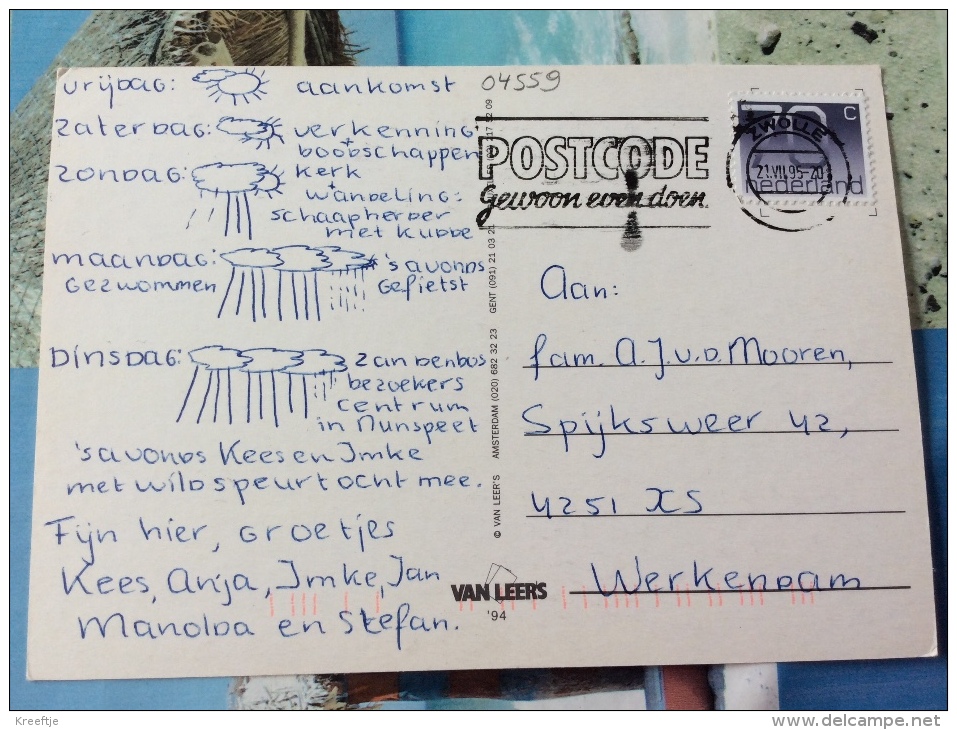 vrijdag: aankomst
zaterdag: verkenning
+
boodschappen
zondag: kerk
+
wandeling:
schaapherder
met kudde
maandag: 's avonds
gezwommen gefietst
Dinsdag: Zandenbos
bezoekers
centrum
in Nunspeet
's avonds Kees en Imke
met wildspeurtocht mee.
Fijn hier, groetjes
Kees, Anja, Imke, Jan
Manolda en Stefan.
04559
POSTCODE
Gewoon even doen.
ZWOLLE
21.VII.95-20
70 c
nederland
Aan:
fam. A.J.v.d. Mooren,
Spijksweer 42,
4251 XS
Werkendam
© VAN LEER'S AMSTERDAM (020) 682 32 23 GENT (091) 21 03 21
217 52 09
VAN LEER'S
'94
Kreeftje
www.delcampe.net